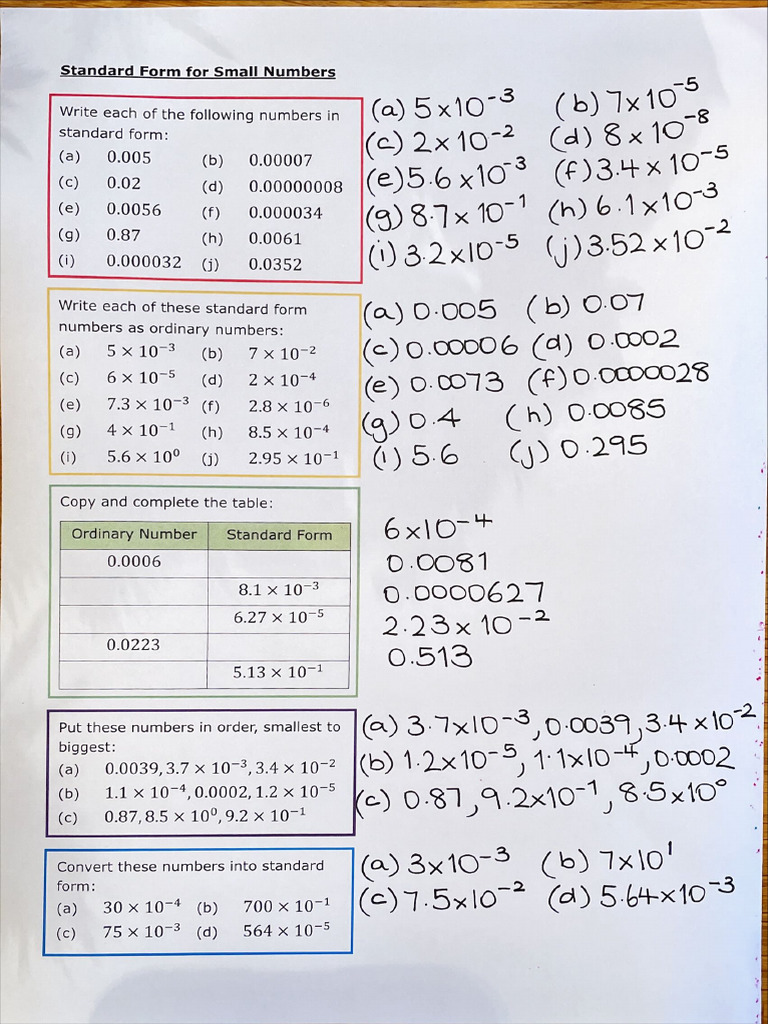 Standard Form for Small Numbers
Write each of the following numbers in
standard form:
(a) 0.005 (b) 0.00007
(c) 0.02 (d) 0.00000008
(e) 0.0056 (f) 0.000034
(g) 0.87 (h) 0.0061
(i) 0.000032 (j) 0.0352
(a) 5×10⁻³ (b) 7×10⁻⁵
(c) 2×10⁻² (d) 8×10⁻⁸
(e) 5.6×10⁻³ (f) 3.4×10⁻⁵
(g) 8.7×10⁻¹ (h) 6.1×10⁻³
(i) 3.2×10⁻⁵ (j) 3.52×10⁻²
Write each of these standard form
numbers as ordinary numbers:
(a) 5 × 10⁻³ (b) 7 × 10⁻²
(c) 6 × 10⁻⁵ (d) 2 × 10⁻⁴
(e) 7.3 × 10⁻³ (f) 2.8 × 10⁻⁶
(g) 4 × 10⁻¹ (h) 8.5 × 10⁻⁴
(i) 5.6 × 10⁰ (j) 2.95 × 10⁻¹
(a) 0.005 (b) 0.07
(c) 0.00006 (d) 0.0002
(e) 0.0073 (f) 0.0000028
(g) 0.4 (h) 0.0085
(i) 5.6 (j) 0.295
Copy and complete the table:
Ordinary Number Standard Form
0.0006
8.1 × 10⁻³
6.27 × 10⁻⁵
0.0223
5.13 × 10⁻¹
6×10⁻⁴
0.0081
0.0000627
2.23×10⁻²
0.513
Put these numbers in order, smallest to
biggest:
(a) 0.0039, 3.7 × 10⁻³, 3.4 × 10⁻²
(b) 1.1 × 10⁻⁴, 0.0002, 1.2 × 10⁻⁵
(c) 0.87, 8.5 × 10⁰, 9.2 × 10⁻¹
(a) 3.7×10⁻³, 0.0039, 3.4×10⁻²
(b) 1.2×10⁻⁵, 1.1×10⁻⁴, 0.0002
(c) 0.87, 9.2×10⁻¹, 8.5×10⁰
Convert these numbers into standard
form:
(a) 30 × 10⁻⁴ (b) 700 × 10⁻¹
(c) 75 × 10⁻³ (d) 564 × 10⁻⁵
(a) 3×10⁻³ (b) 7×10¹
(c) 7.5×10⁻² (d) 5.64×10⁻³